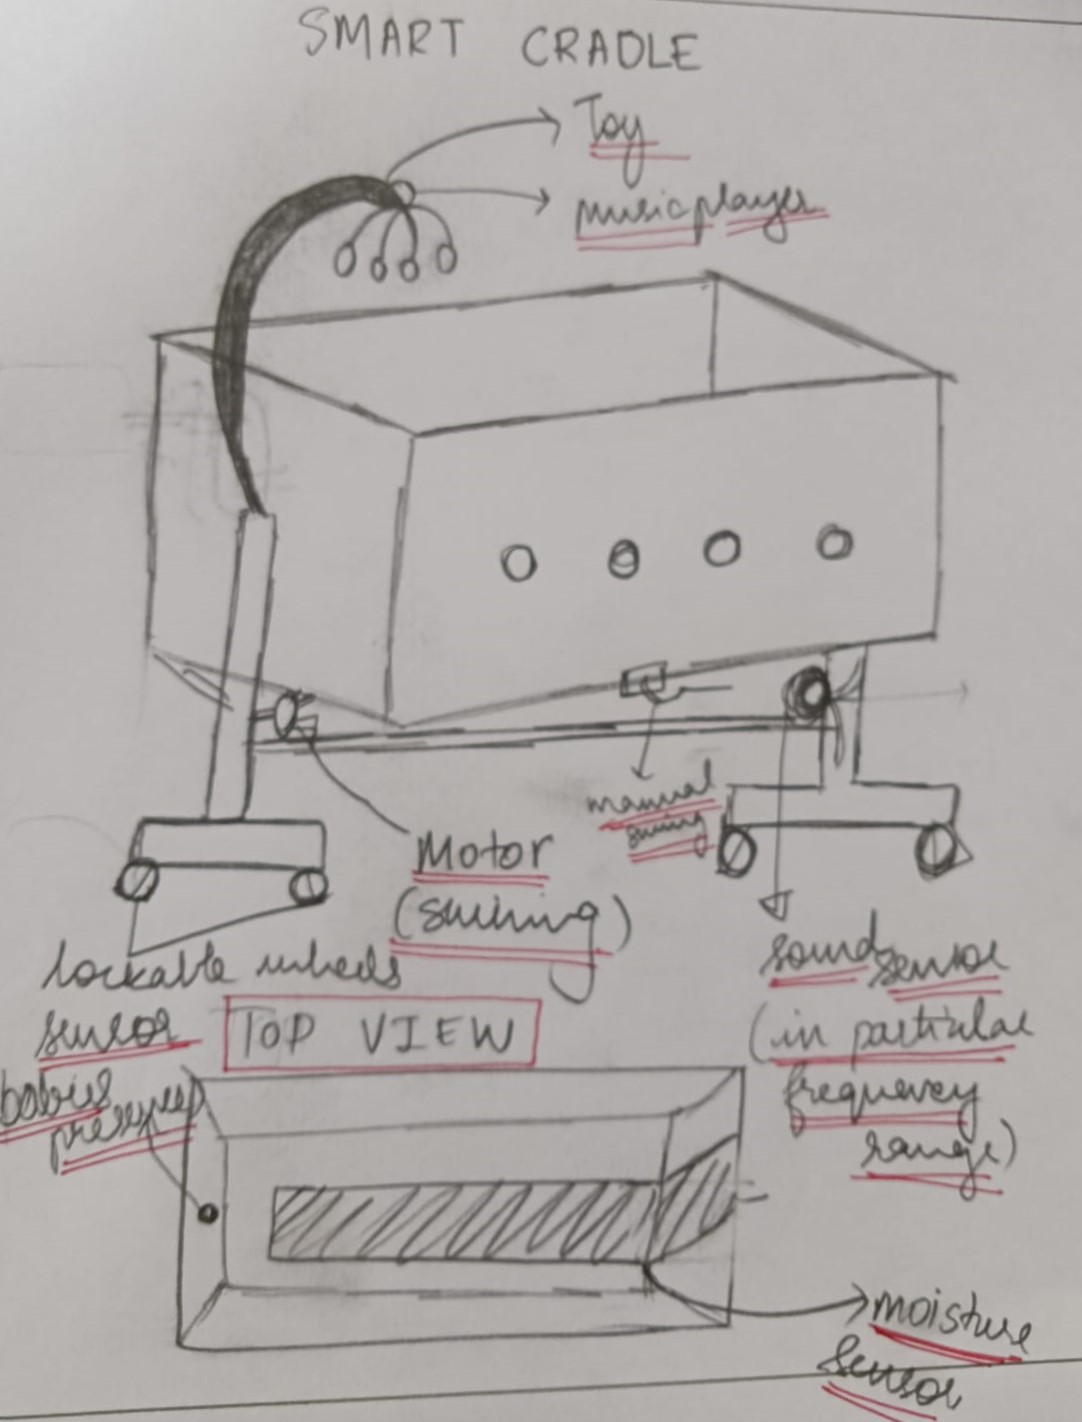 SMART CRADLE
Toy
music player
manual
swing
Motor
(swining)
lockable wheels
sound sensor
(in particular
frequency
range)
sensor
babies
TOP VIEW
moisture
sensor